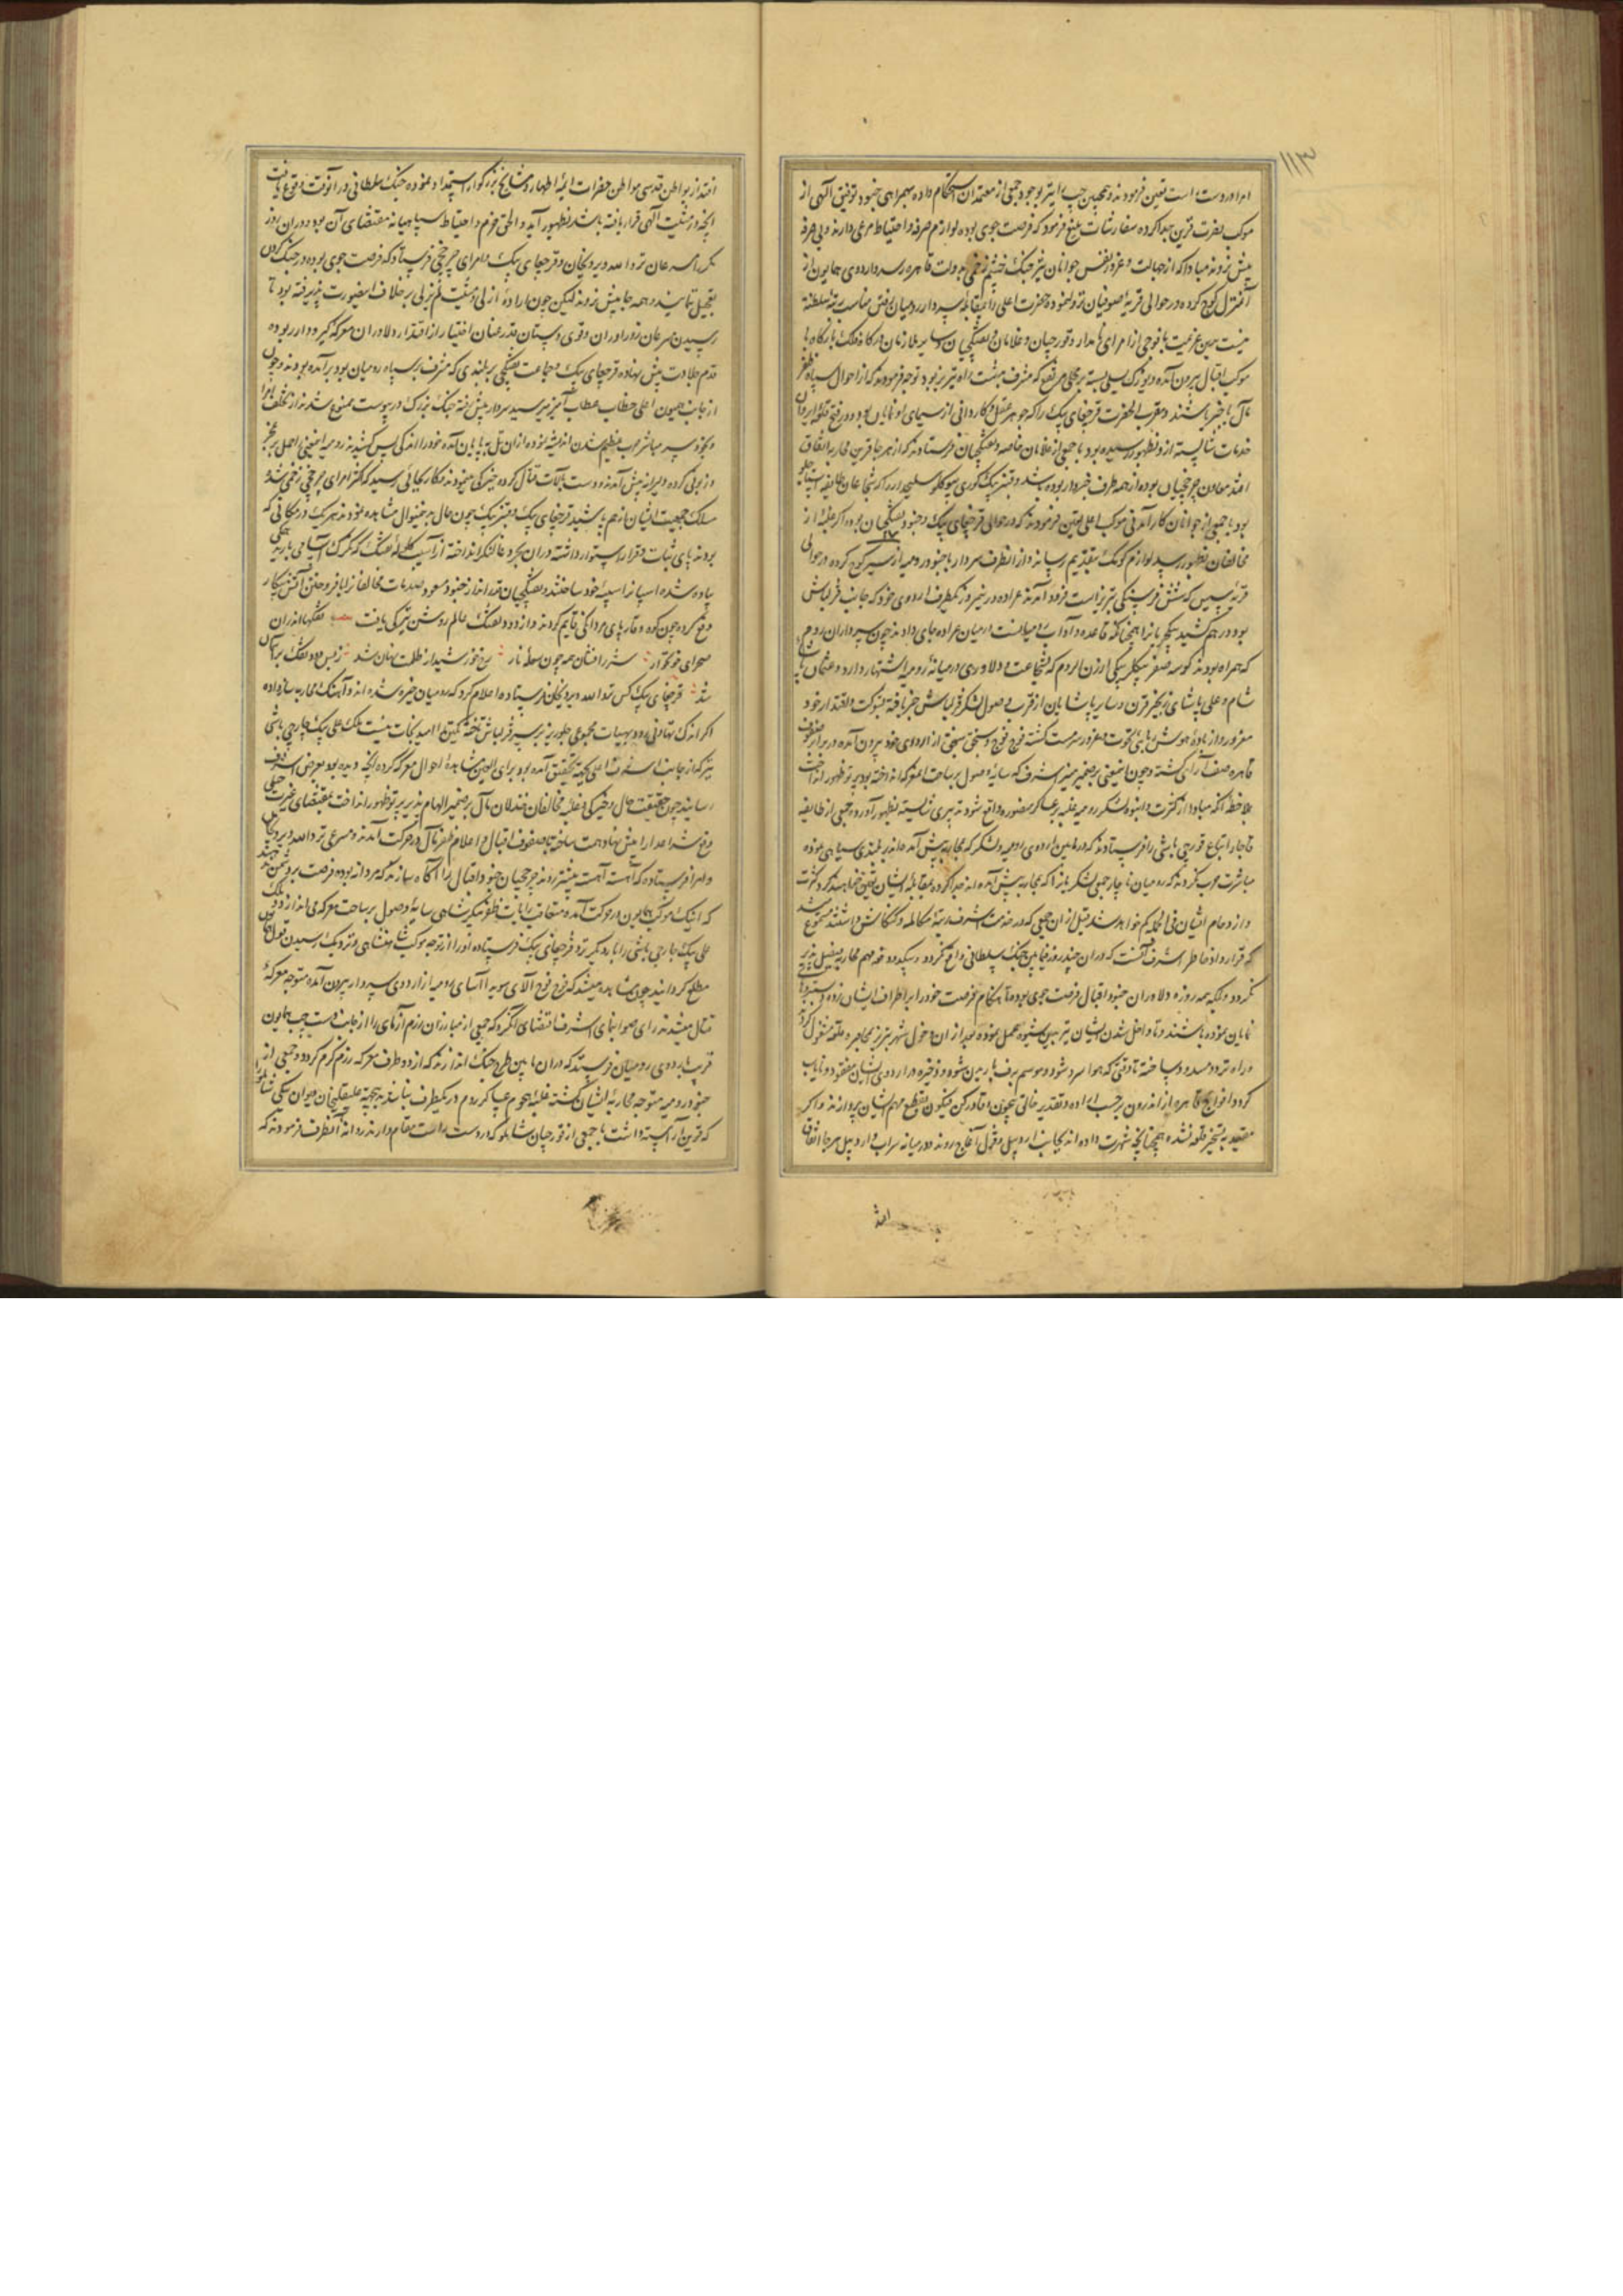 ۱۱۳
امرا در دست راست تعیین فرمودند و همچنین جانب ایسر بوجود جمعی از معتمدان استحکام داده بهمراهی جنود توفیق الهی از
موکب نصرت قرین جدا کرده سفارشات بلیغ فرمود که فرصت جوی بوده لوازم صرفه و احتیاط مرعی دارند و بی صرفه
پیش نروند مبادا که از جهالت و غرور نفس جوانان تیز جنگ خشم زخمی بدولت قاهره رسد و اردوی همایون از
آن منزل کوچ کرده در حوالی قریهٔ صوفیان نزول نموده حضرت اعلی را بمقابلهٔ سردار رومیان رفتن مناسب رتبهٔ سلطنت
نیست بدین عزیمت با فوجی از امرای نامدار و قورچیان و غلامان و تفنکچیان و سایر ملازمان درکاه فلک بارکاه با
موکب اقبال بیرون آمده و یوزک یسلی بسته بر محلی مرتفع که مشرف بدشت راه تبریز بود توجه فرمودند که از احوال سپاه ظفر
مآل باخبر باشند و مقرب الحضرت قرچغای بیک را که جوهر عقل و کاردانی از سیمای او نمایان بود و در فتح قلعهٔ ایروان
خدمات شایسته ازو بظهور رسیده بود با جمعی از غلامان خاصه و تفنکچیان فرستادند که از هر جا قرین محاربه اتفاق
افتد معاون چرخچیان بوده از همه طرف خبردار بوده باشد و قنبر بیک کوزی بیوکلو سلیحدار را که از شجاعان طایفهٔ استاجلو
بود با جمعی از جوانان کارآمدنی موکب اعلی تعیین فرمودند که در حوالی قرچغای بیک و جنود تفنکچیان بوده اکر غلبه از
مخالفان بظهور رسید لوازم کومک بتقدیم رسانند و از آنطرف سردار با جنود رومیه از سیر کوچ کرده در حوالی
قریهٔ سیس که شش فرسنکی تبریز است فرود آمدند عراده و زنجیر در یکطرف اردوی خود که جانب قزلباش
بود در هم کشید ینکچریان را همچنانکه قاعده و آداب رومیانست در میان عراده جای دادند چون سرداران روم
که همراه بودند کوسه صفر بیکلربیکی ارزن الروم که بشجاعت و دلاوری در میانهٔ رومیه اشتهار دارد و عثمان پاشای
شام و علی پاشای زنجیر قرن و سایر پاشایان از قرب وصول لشکر قزلباش خبر یافته بشوکت و اقتدار خود
مغرور و از بادهٔ هوش ربای نخوت و غرور سرمست کشته فوج فوج و سنجق سنجق از اردوی خود بیرون آمده در برابر صفوف
قاهره صف آرای کشته و چون این معنی بر ضمیر منیر اشرف که سایهٔ وصول بر ساحت معرکه انداخته بود پرتو ظهور انداخت
بملاحظه آنکه مبادا از کثرت و انبوه لشکر رومیه غلبه بر عساکر منصوره واقع شود تدبیری شایسته بظهور آورده جمعی از طایفهٔ
قاجار و اتباع قورچی باشی را فرستادند که در مابین اردوی رومیه و لشکر که بمحاربه پیش آمده‌اند بر بلندی سیاهی نموده
مباشرت حرب نکردند که رومیان ناچار جمعی لشکریان را که بمحاربه پیش آمده‌اند جدا کرده بمقابلهٔ ایشان تعیین خواهند کرد و کثرت
و ازدحام ایشان فی الجمله کم خواهد شد قبل از آن جمعی که در خدمت اشرف رتبهٔ مکالمه و کنکاش داشتند مسموع شد
که قرارداد خاطر اشرف آنست که در آن چند روز فیمابین جنک سلطانی واقع نکردد و بیکدفعه مهم محاربه فیصل پذیر
نکردد و بلکه همه روزه دلاوران جنود اقبال فرصت جوی بوده تا هنکام فرصت خود را بر اطراف ایشان زده دستبردهای
نمایان نموده باشند و تا داخل شدن ایشان تبریز بهمین شیوه عمل نموده بعد از آن دخول شهر تبریز بمحاصره قلعه مشغول کردند
و راه تردد مسدود ساخته تا وقتی که هوا سرد شود و موسم برف باریدن شود و ذخیره در اردوی ایشان مفقود و نایاب
کردد افواج قاهره از اندرون برحسب اراده و تقدیر خالق بیچون و قادر کن فیکون بقطع مهم ایشان پردازند و اکر
مقید بتسخیر قلعه نشده همچنانچه شهرت داده‌اند بجانب اردبیل و قزل آغاج روند در میانه سراب و اردبیل هر جا اتفاق
افتد
افتد از بواطن قدسی مواطن حضرات ائمهٔ اطهار و مشایخ بزرکوار استمداد نموده جنک سلطانی در آنوقت وقوع یافت
آنچه در مشیت الهی قرار یافته باشد بظهور آید و الحق حزم و احتیاط سپاهیانه مقتضای آن بود و در آن روز
مکرر مسرعان نزد الله ویردیخان و قرچغای بیک و امرای چرخچی فرستاد که فرصت جوی بوده در جنک کردن
تعجیل ننمایند و همه جا پیش نروند لیکن چون ارادهٔ ازلی و مشیت لم یزلی بر خلاف این صورت پذیرفته بود تا
رسیدن مسرعان زورآوران و قوی دستان قدر عنان اختیار از اقتدار دلاوران معرکهٔ کیر و دار ربوده
قدم جلادت پیش نهاده قرچغای بیک و جماعت تفنکچی بر بلندی که مشرف بر سپاه رومیان بود برآمده بودند و چون
از جانب همیون اعلی خطاب عتاب آمیز نیز رسید سردار پیش رفته جنک بزرک در پیوست ممنوع شدند از تخلف امر
و بجز سپر مباشر حرب عظیم شدن اندیشه نموده از آن تل به پایان آمده خود را اندکی پس کشیدند رومیه این معنی را حمل بر عجز
و زبونی کرده دلیرانه پیش آمدند و دست بآلات قتال کرده خیرکی مینمودند تا کار بجائی رسید که اکثر امرای چرخچی زخمی شده
سلک جمعیت ایشان از هم پاشید قرچغای بیک و قنبر بیک چون حال بدین منوال مشاهده نمودند هر یک در مکانی که
بودند پای ثبات و قرار استوار داشته در آن بحر دغا لنکر انداخته از آسیب کلولهٔ تفنک که تکرک آسا می بارید همکی
پیاده شده اسپان را سیبهٔ خود ساختند و تفنکچیان قدرانداز جنود مسعود صدمات مخالفان را با افروختن آتش پیکار
دفع کرده چون کوه وقار پای مردانکی قایم کردند و از دود تفنک عالم روشن تیرکی یافت بیت تفنکها اندران
صحرای خونخوار شررافشان همه چون شعلهٔ نار رخ خورشید از ظلمت نهان شد ز بس دود تفنک بر آسمان
شد قرچغای بیک کس نزد الله ویردیخان فرستاده اعلام کرد که رومیان خیره شده‌اند و آهنک محاربه ساز داده
اکر اندک تهاونی رود بهیات مجموعی جلوریز بر سر قزلباش تاخته یمکن که امید نجات نیست ملک علی بیک جارچی باشی
نیز که از جانب اشرف اعلی بجهة تحقیق آمده بود برای العین مشاهدهٔ احوال معرکه کرده آنچه دیده بود بعرض اشرف
رسانید چون حقیقت حال و خیرکی و غلبهٔ مخالفان خذلان مآل بر ضمیر الهام پذیر پرتو ظهور انداخت بمقتضای غیرت جبلی
دفع شر اعدا را پیش نهاد همت ساخته با صفوف اقبال و اعلام ظفر مآل در حرکت آمدند و مسرعی نزد الله ویردیخان
و امرا فرستاده که آهسته آهسته پیشتر روند و چرخچیان جنود اقبال را آکاه سازند که مردانه بوده فرصت بر دشمن ندهند
که اینک موکب همایون در حرکت آمده متعاقب رایات ظفر پیکر شاهی سایهٔ وصول بر ساحت معرکه می اندازد و ملک
علی بیک جارچی باشی را بار دیکر نزد قرچغای بیک فرستاده او را از توجه موکب شاهنشاهی و نزدیک رسیدن قول همایون
مطلع کردانید چون مشاهده میشد که فوج فوج آلای سویه آسای رومیه از اردوی سردار بیرون آمده متوجه معرکهٔ
قتال میشدند رای صوابنمای اشرف اقتضای آن کرد که جمعی از مبارزان رزم آزمای را از جانب دست چپ همایون
قریب باردوی رومیان فرستد که در آن مابین طرح جنک اندازند که از دو طرف معرکه رزم کرم کردد و جمعی از
جنود رومیه متوجه محاربهٔ ایشان کشته غلبهٔ هجوم عساکر روم در یکطرف نباشد بهمجهة علیقلیخان دیوان بیکی شاملو را
که قرین آراسته داشت با جمعی از قورچیان شاملو که در دست راست مقام دارند روانهٔ آنطرف فرمودند که